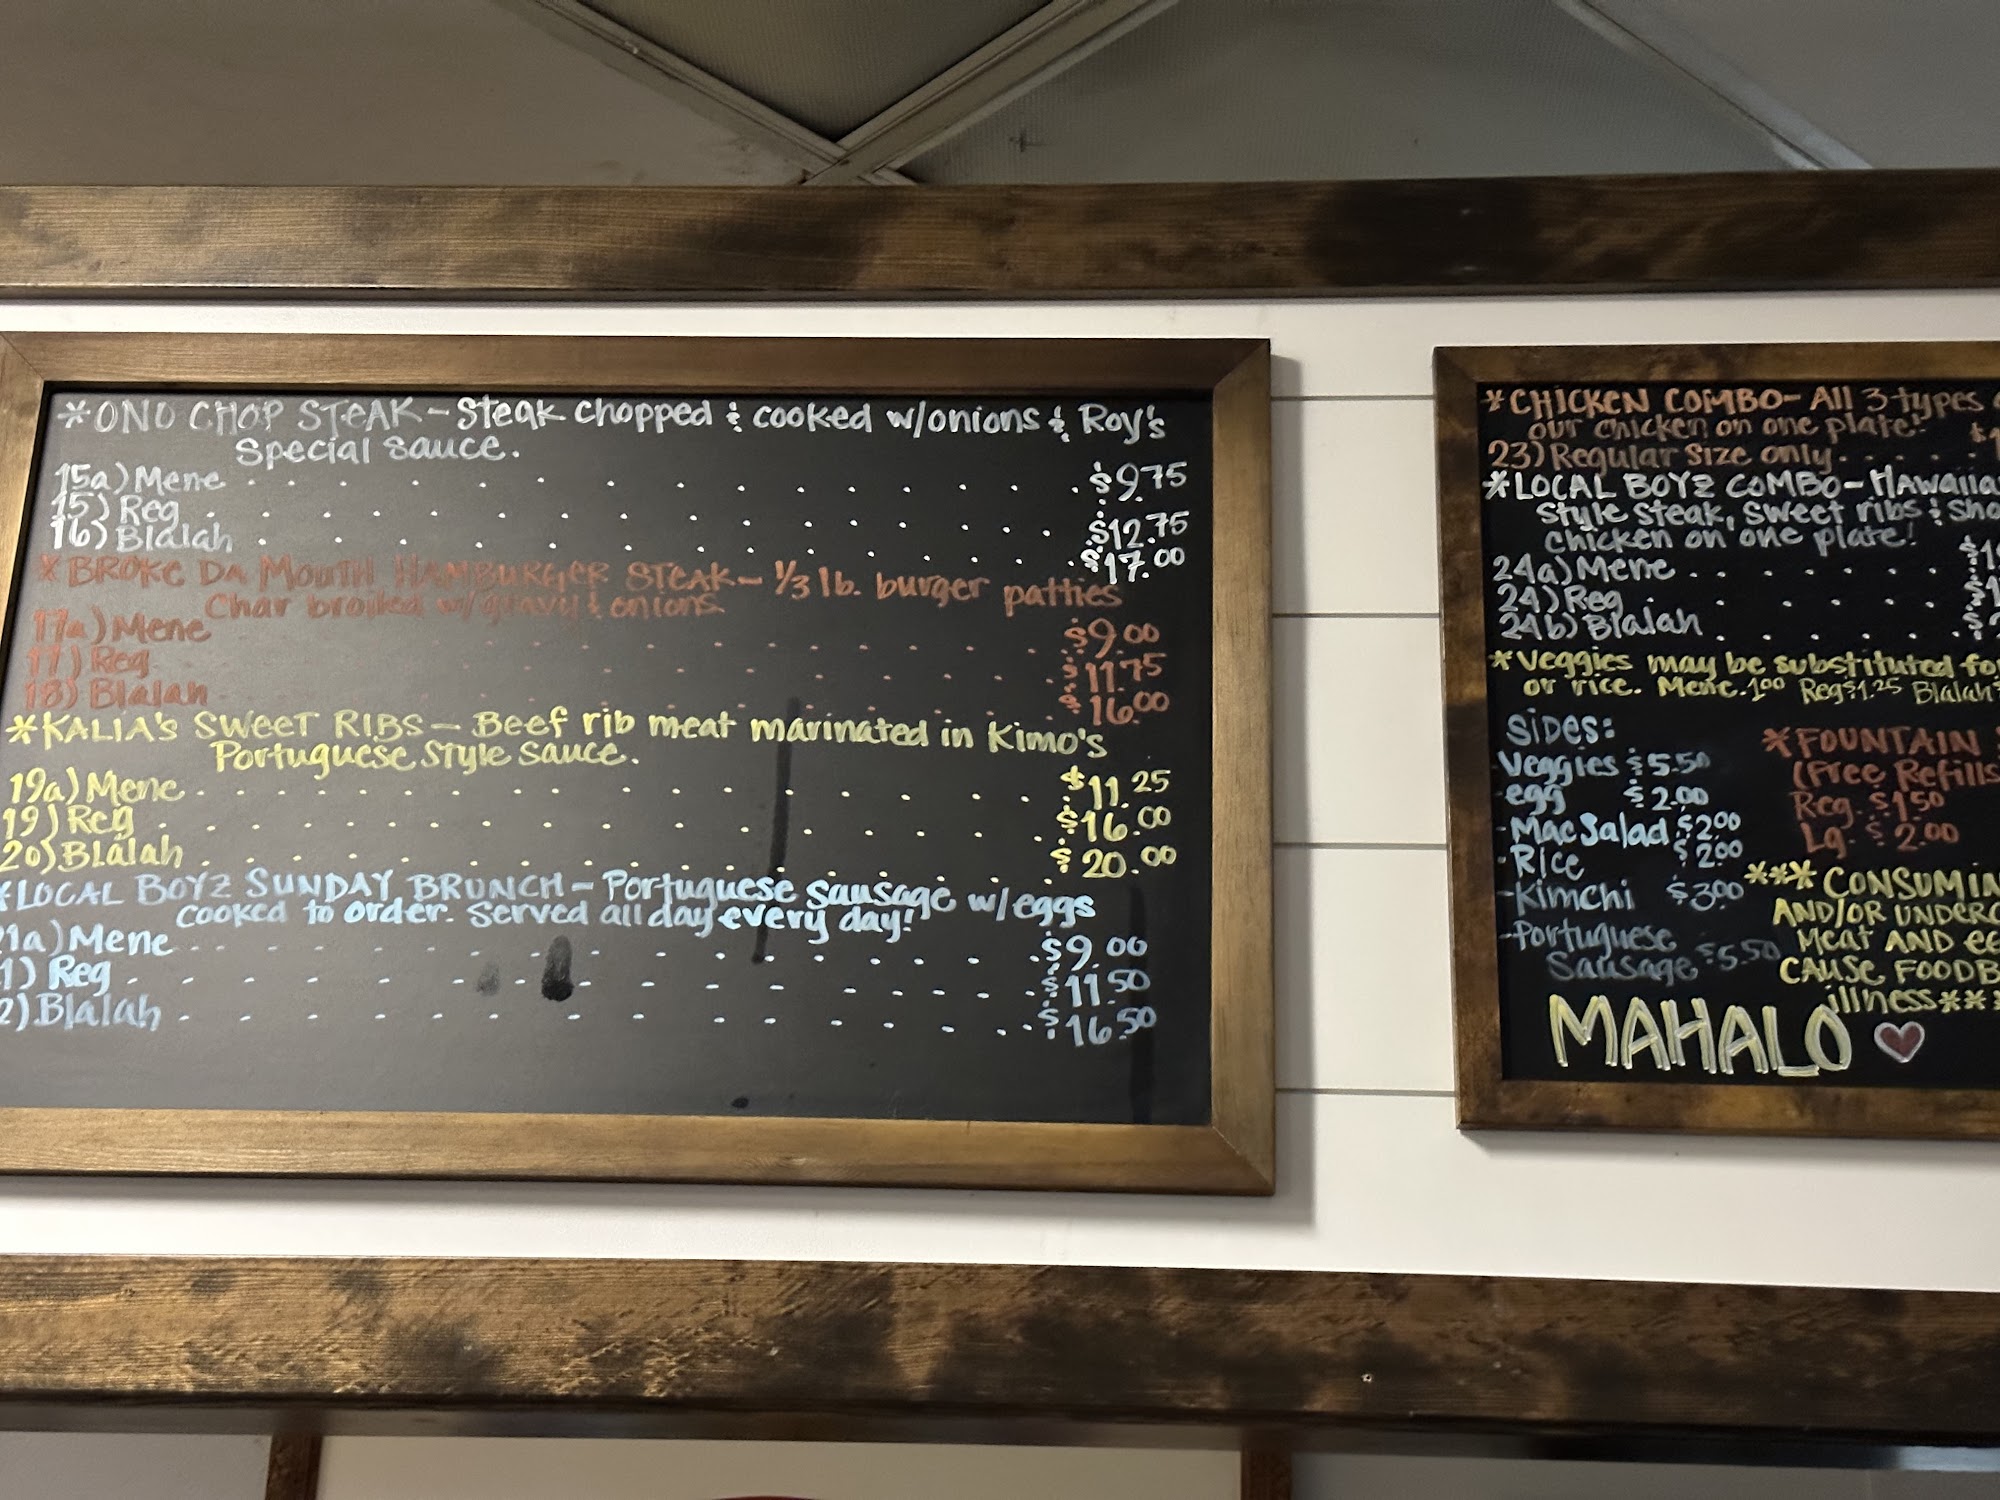 *ONO CHOP STEAK - Steak chopped & cooked w/onions & Roy's
Special sauce.
15a) Mene . . . . . . . . . . . . $9.75
15) Reg . . . . . . . . . . . . $12.75
16) Blalah . . . . . . . . . . . . $17.00
*BROKE DA MOUTH HAMBURGER STEAK - 1/3 lb. burger patties
Char broiled w/gravy & onions
17a) Mene . . . . . . . . . $9.00
17) Reg . . . . . . . . . $11.75
18) Blalah . . . . . . . . . $16.00
*KALIA'S SWEET RIBS - Beef rib meat marinated in Kimo's
Portuguese Style Sauce.
19a) Mene . . . . . . . . . . . . $11.25
19) Reg . . . . . . . . . . . . $16.00
20) Blalah . . . . . . . . . . . . $20.00
*LOCAL BOYZ SUNDAY BRUNCH - Portuguese sausage w/eggs
cooked to order. Served all day every day!
1a) Mene . . . . . . . . . . . . $9.00
1) Reg . . . . . . . . . . . . $11.50
2) Blalah . . . . . . . . . . . . $16.50
*CHICKEN COMBO - All 3 types
our chicken on one plate!
23) Regular Size only . . . . . $1
*LOCAL BOYZ COMBO - Hawaiia
Style steak, sweet ribs & Sho
chicken on one plate!
24a) Mene . . . . . . . $1
24) Reg . . . . . . . $1
24b) Blalah . . . . . . . $2
*Veggies may be substituted fo
or rice. Mene.1.00 Reg $1.25 Blalah
Sides:
-Veggies $5.50
-egg $2.00
-Mac Salad $2.00
-Rice $2.00
-Kimchi $3.00
-Portuguese
Sausage $5.50
*FOUNTAIN
(Free Refills
Reg. $1.50
Lg. $2.00
***CONSUMIN
AND/OR UNDERC
Meat AND ee
CAUSE FOODB
illness**
MAHALO